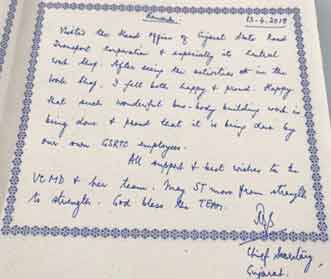 Remarks
13-4-2018
Visited the Head Office of Gujarat State Road
Transport Corporation & especially its Central
Work Shop. After seeing the activities in the
Work Shop. I felt both happy & proud. Happy
that such wonderful bus-body building work is
being done & proud that it is being done by
our own GSRTC employees.
All support & best wishes to the
VC MD & her team. May ST move from strength
to strength. God bless the TEAM.
Chief Secretary,
Gujarat.